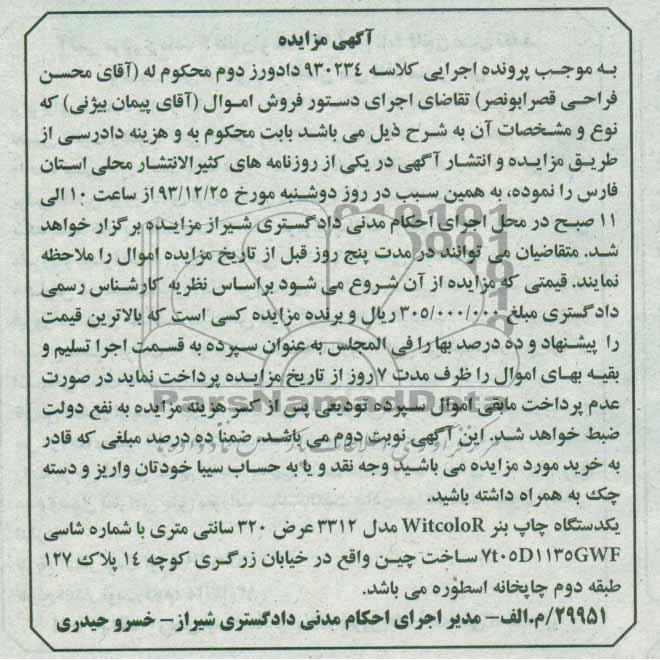 آگهی مزایده
به موجب پرونده اجرایی کلاسه ۹۳۰۲۳٤ دادورز دوم محکوم له (آقای محسن
فراحی قصرابونصر) تقاضای اجرای دستور فروش اموال (آقای پیمان بیژنی) که
نوع و مشخصات آن به شرح ذیل می باشد بابت محکوم به و هزینه دادرسی از
طریق مزایده و انتشار آگهی در یکی از روزنامه های کثیرالانتشار محلی استان
فارس را نموده، به همین سبب در روز دوشنبه مورخ ۹۳/۱۲/۲٥ از ساعت ۱۰ الی
۱۱ صبح در محل اجرای احکام مدنی دادگستری شیراز مزایده برگزار خواهد
شد. متقاضیان می توانند در مدت پنج روز قبل از تاریخ مزایده اموال را ملاحظه
نمایند. قیمتی که مزایده از آن شروع می شود براساس نظریه کارشناس رسمی
دادگستری مبلغ ۳۰٥/۰۰۰/۰۰۰ ریال و برنده مزایده کسی است که بالاترین قیمت
را پیشنهاد و ده درصد بها را فی المجلس به عنوان سپرده به قسمت اجرا تسلیم و
بقیه بهای اموال را ظرف مدت ۷ روز از تاریخ مزایده پرداخت نماید در صورت
عدم پرداخت مابقی اموال سپرده تودیعی پس از کسر هزینه مزایده به نفع دولت
ضبط خواهد شد. این آگهی نوبت دوم می باشد. ضمنا ده درصد مبلغی که قادر
به خرید مورد مزایده می باشید وجه نقد و یا به حساب سیبا خودتان واریز و دسته
چک به همراه داشته باشید.
یکدستگاه چاپ بنر WitcoloR مدل ۳۳۱۲ عرض ۳۲۰ سانتی متری با شماره شاسی
۷t۰٥D۱۱۳٥GWF ساخت چین واقع در خیابان زرگری کوچه ۱٤ پلاک ۱۲۷
طبقه دوم چاپخانه اسطوره می باشد.
۲۹۹٥۱/م.الف- مدیر اجرای احکام مدنی دادگستری شیراز- خسرو حیدری
ParsNamadData